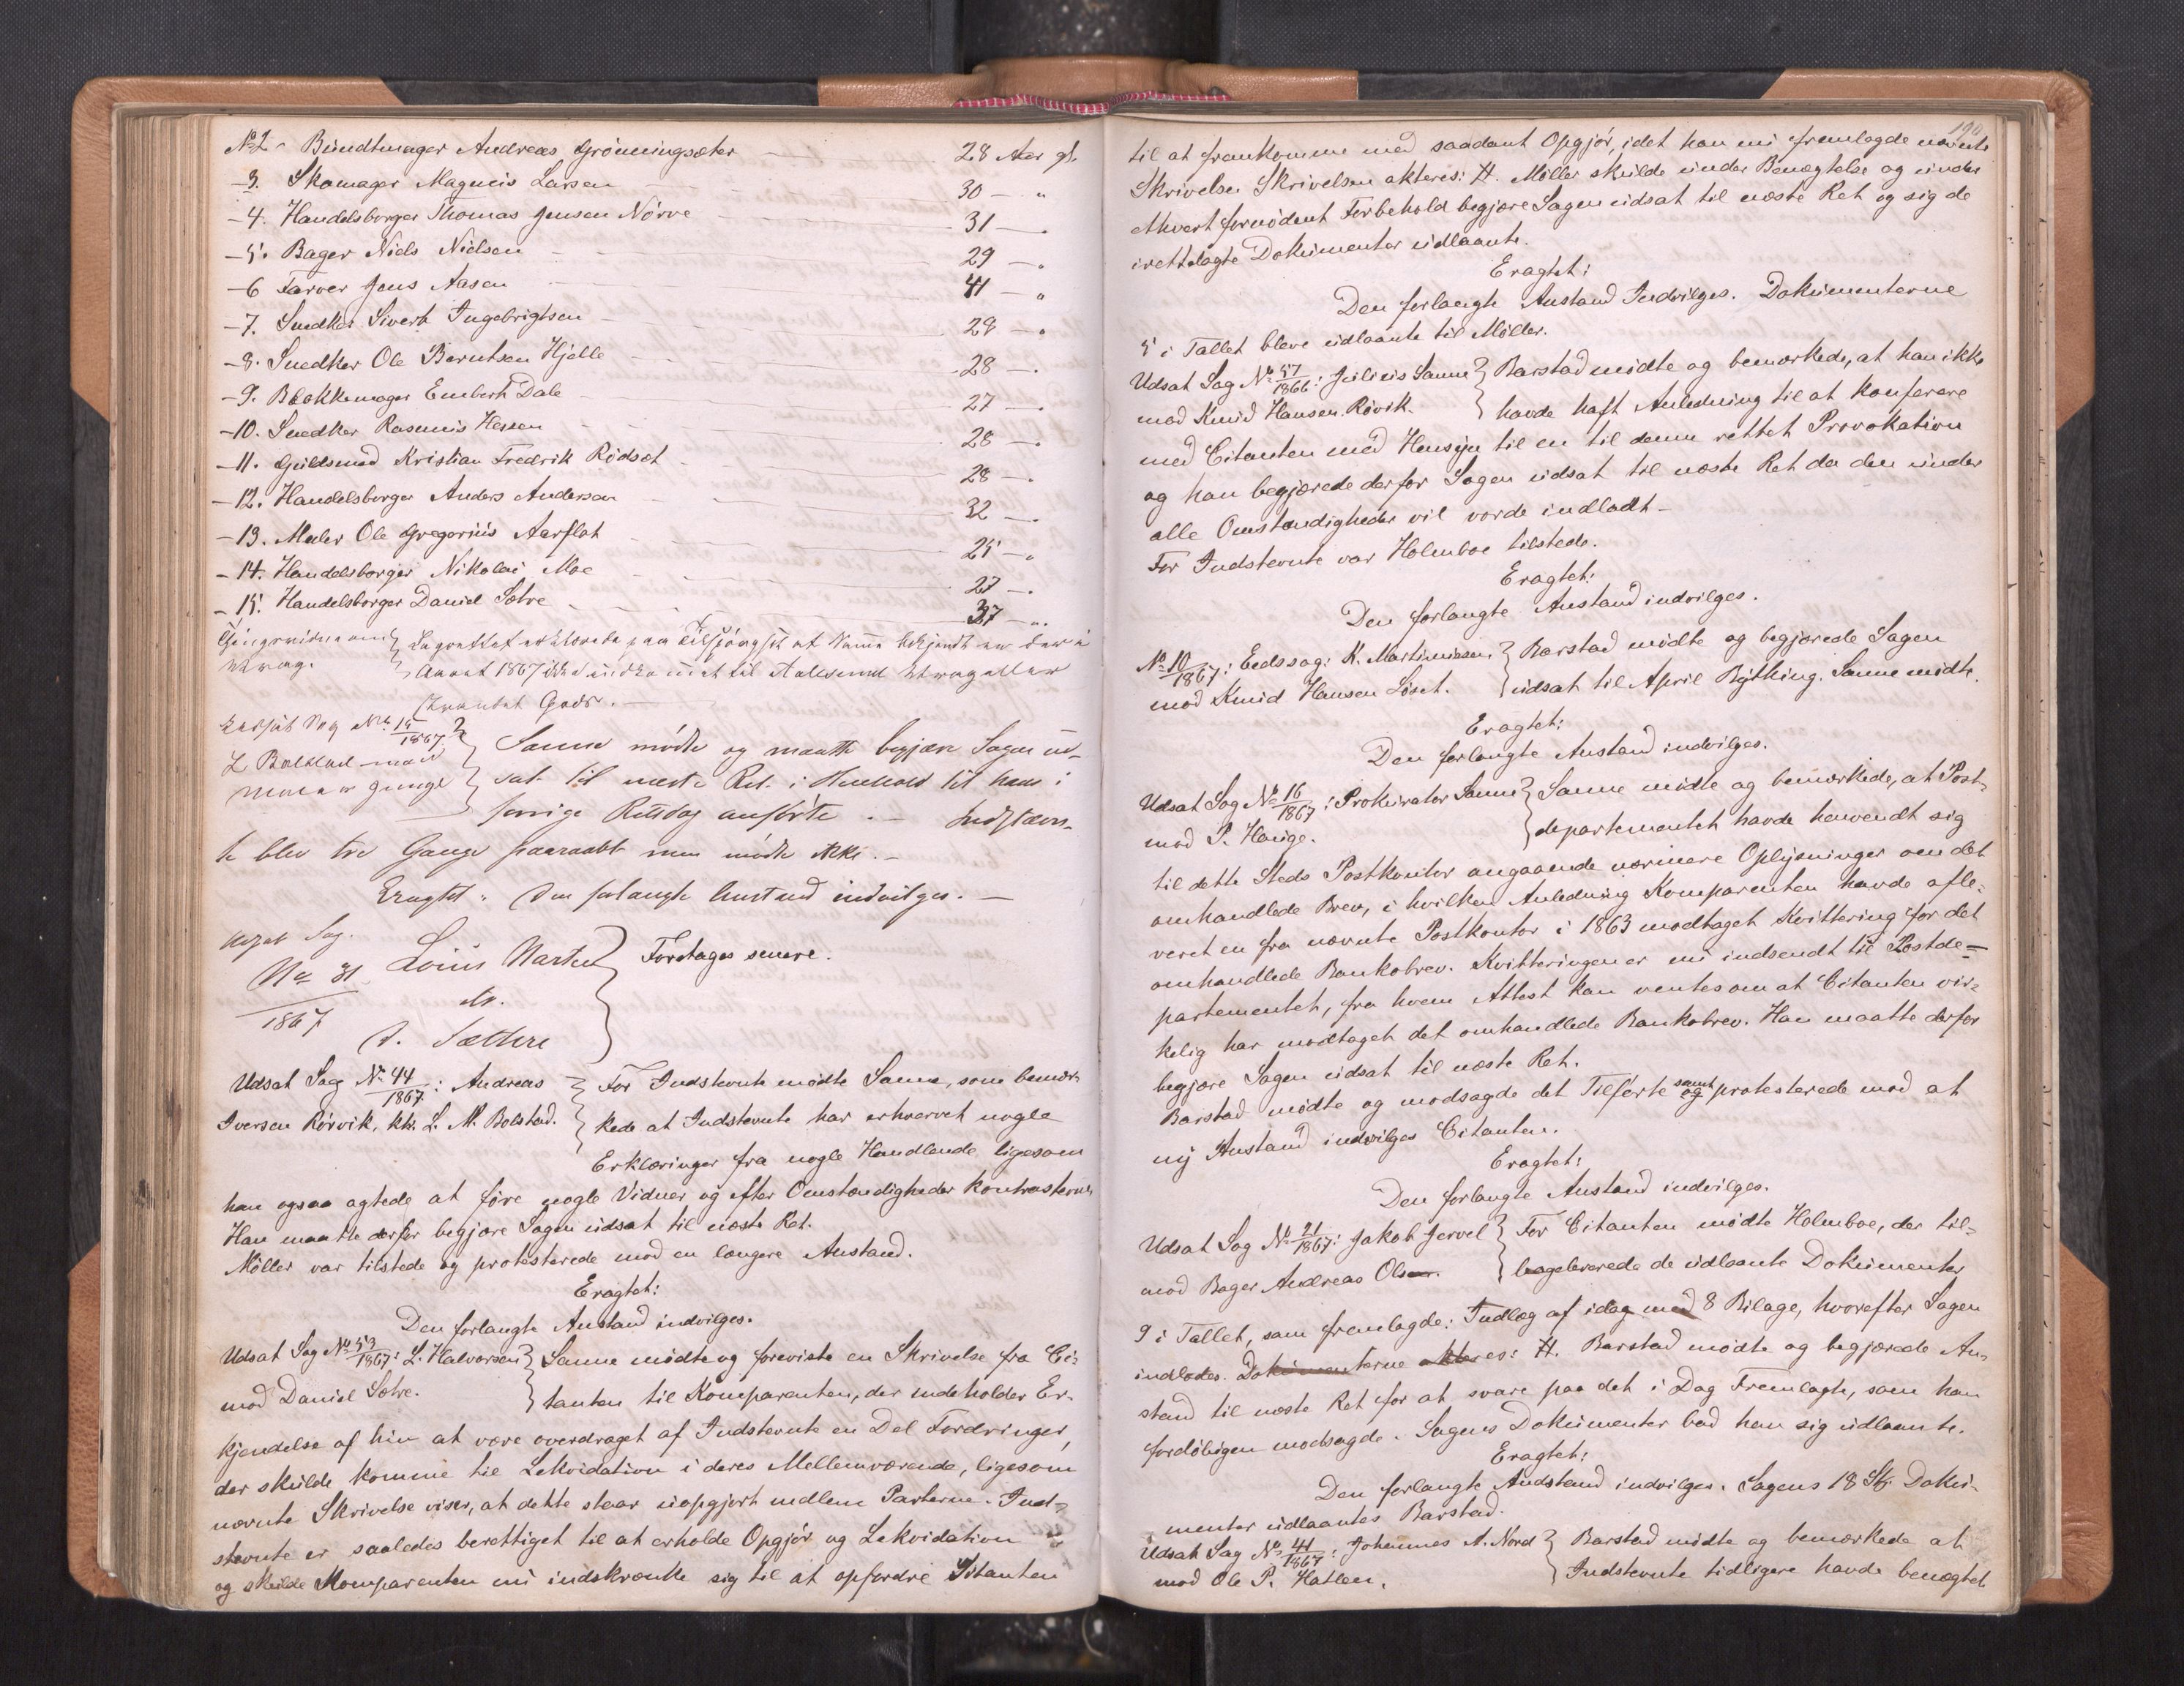 No 2 - Bundtmager Andreas Grönningsæter 28 Aar gl.
- 3. Skomager Magnus Larsen 30 — "
- 4. Handelsborger Thomas Jensen Nörve 31 —
- 5. Bager Niels Nielsen 29 —
- 6 Farver Jens Aasen 41 — "
- 7. Snedker Sivert Ingebrigtsen 28 — "
- 8. Snedker Ole Berntsen Hjelle 28 —
- 9. Blokkemager Embert Dale 27 —
- 10. Snedker Rasmus Hessen 28 —
- 11. Guldsmed Kristian Fredrik Rödset 28 —
- 12. Handelsborger Anders Andersen 32 —
- 13. Maler Ole Gregorius Aarflot 25 — "
- 14. Handelsborger Nikolai Moe 27 —
- 15. Handelsborger Daniel Sætre 37 — "
Thingsvidne om Lagrettet erklærede paa Tilspörgsel at Namn bekjendt er der i
Vrag. Aaret 1867 ikke indkommet til Aalesund Vrag eller
strandet Gods. —
Udsat Sag No 15/1867
L Bolstad mod
Sanne mödte og maatte begjære Sagen ud-
sat til næste Ret i Henhold til hans i
forrige Retsdag anförte. — Indstævn-
te blev tre Gange paaraabt men mödte ikke. —
Eragtet: Den forlangte Anstand indvilges. —
Udsat Sag.
No 31 1867 Louis Narten
ctr.
D. Sættere
Foretages senere.
Udsat Sag No 44/1867: Andreas For Indstevnte mödte Sanne, som bemær-
Iversen Rörvik, ktr. L. M. Bolstad. kede at Indstevnte har erhvervet nogle
Erklæringer fra nogle Handlende, ligesom
han ogsaa agtede at före nogle Vidner og efter Omstændigheder kontrastevne
Han maatte derfor begjære Sagen udsat til næste Ret.
Möller var tilstede og protesterede mod en længere Anstand.
Eragtet:
Den forlangte Anstand indvilges.
Udsat Sag No 53/1867: L. Halvorsen Sanne mödte og foreviste en Skrivelse fra Ci-
mod Daniel Sætre. tanten til Komparenten, der indeholder Er-
kjendelse af hin at være overdraget af Indstevnte en Del Fordringer,
der skulde komme til Lekvidation i deres Mellemværende, ligesom
nævnte Skrivelse viser, at dette staar uopgjort mellem Parterne. Ind-
stevnte er saaledes berettiget til at erholde Opgjör og Lekvidation
og skulde Komparenten nu indskrænke sig til at opfordre Citanten
190
til at fremkomme med saadant Opgjör, idet han nu fremlagde nævnte
Skrivelse Skrivelsen akteres: H. Möller skulde under Benægtelse og under
ethvert fornödent Forbehold begjære Sagen udsat til næste Ret og sig de
irettelagte Dokumenter udlaante.
Eragtet:
Den forlangte Anstand Indvilges. Dokumenterne
5 i Tallet bleve udlaante til Möller.
Udsat Sag No 57/1866: Julius Sanne Barstad mödte og bemærkede, at han ikke
mod Knud Hansen Rövik. havde haft Anledning til at konferere
med Citanten med Hensyn til en til denne rettet Provokation
og han begjærede derfor Sagen udsat til næste Ret da den under
alle Omstændigheder vil vorde indladt —
For Indstevnte var Holmboe tilstede.
Eragtet:
Den forlangte Anstand indvilges.
No 10/1867: Eedssag: K. Martinusen Barstad mödte og begjærede Sagen
mod Knud Hansen Löset. udsat til April Bything. Sanne mödte.
Eragtet:
Den forlangte Anstand indvilges.
Udsat Sag No 16/1867: Prokurator Sanne Sanne mödte og bemærkede, at Post-
mod P. Hauge. departementet havde henvendt sig
til dette Steds Postkontor angaaende nærmere Oplysninger om det
omhandlede Brev, i hvilken Anledning Komparenten havde afle-
veret en fra nævnte Postkontor i 1863 modtaget Kvittering for det
omhandlede Bankobrev. Kvitteringen er nu indsendt til Postde-
partementet, fra hvem Attest kan ventes om at Citanten vir-
kelig har modtaget det omhandlede Bankobrev. Han maatte derfor
begjære Sagen udsat til næste Ret.
Barstad mödte og modsagde det Tilförte og samt protesterede mod at
ny Anstand indvilges Citanten.
Eragtet:
Den forlangte Anstand indvilges.
Udsat Sag No 21/1867: Jakob Jervel For Citanten mödte Holmboe, der til-
mod Bager Andreas Olsen. bageleverede de udlaante Dokumenter
9 i Tallet, som fremlagde: Indlæg af idag med 8 Bilage, hvorefter Sagen
indlodes. Dokumenterne akteres: H. Barstad mödte og begjærede An-
stand til næste Ret for at svare paa det i Dag Fremlagte, som han
forelöbigen modsagde. Sagens Dokumenter bad han sig udlaante.
Eragtet:
Den forlangte Andstand indvilges. Sagens 18 Stk. Doku-
menter udlaantes Barstad.
Udsat Sag No 41/1867: Johannes A. Nord Barstad mödte og bemærkede at
mod Ole P. Hatlen. Indstevnte tidligere havde benægtet